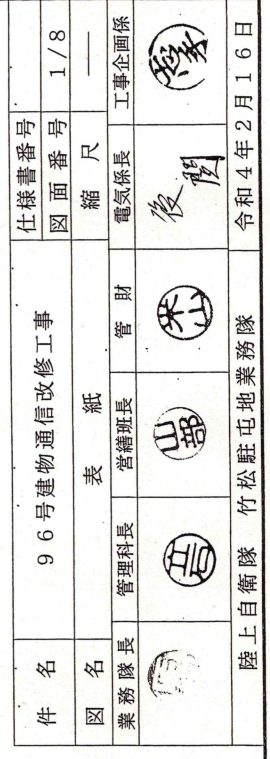 件名 96号建物通信改修工事 仕様書番号
図名 表紙 図面番号 1/8
縮尺 ―
業務隊長 管理科長 営繕班長 管財 電気係長 工事企画係
山部 後関
陸上自衛隊 竹松駐屯地業務隊 令和4年2月16日